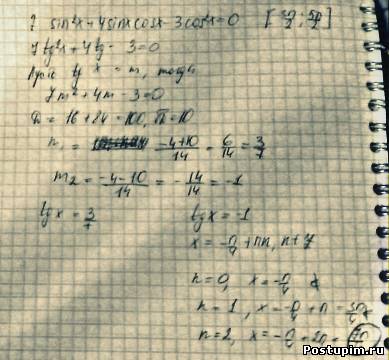 7 sin²x + 4 sinx cosx - 3cos²x = 0 [3π/2; 5π/2]
7tg²x + 4tg - 3 = 0
tg x = m, тогда
7m² + 4m - 3 = 0
D = 16 + 84 = 100, √D = 10
-4+10/14 = 6/14 = 3/7
m2 = -4-10/14 = -14/14 = -1
tg x = 3/7
tg x = -1
x = -π/4 + πn, n
n = 0, x = -π/4
n = 1, x = -π/4 + π =
n = 2, x = -π/4
Postupim.ru